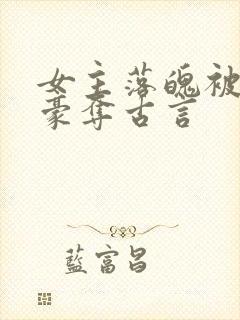 女主落魄被
豪奪古言
藍富昌